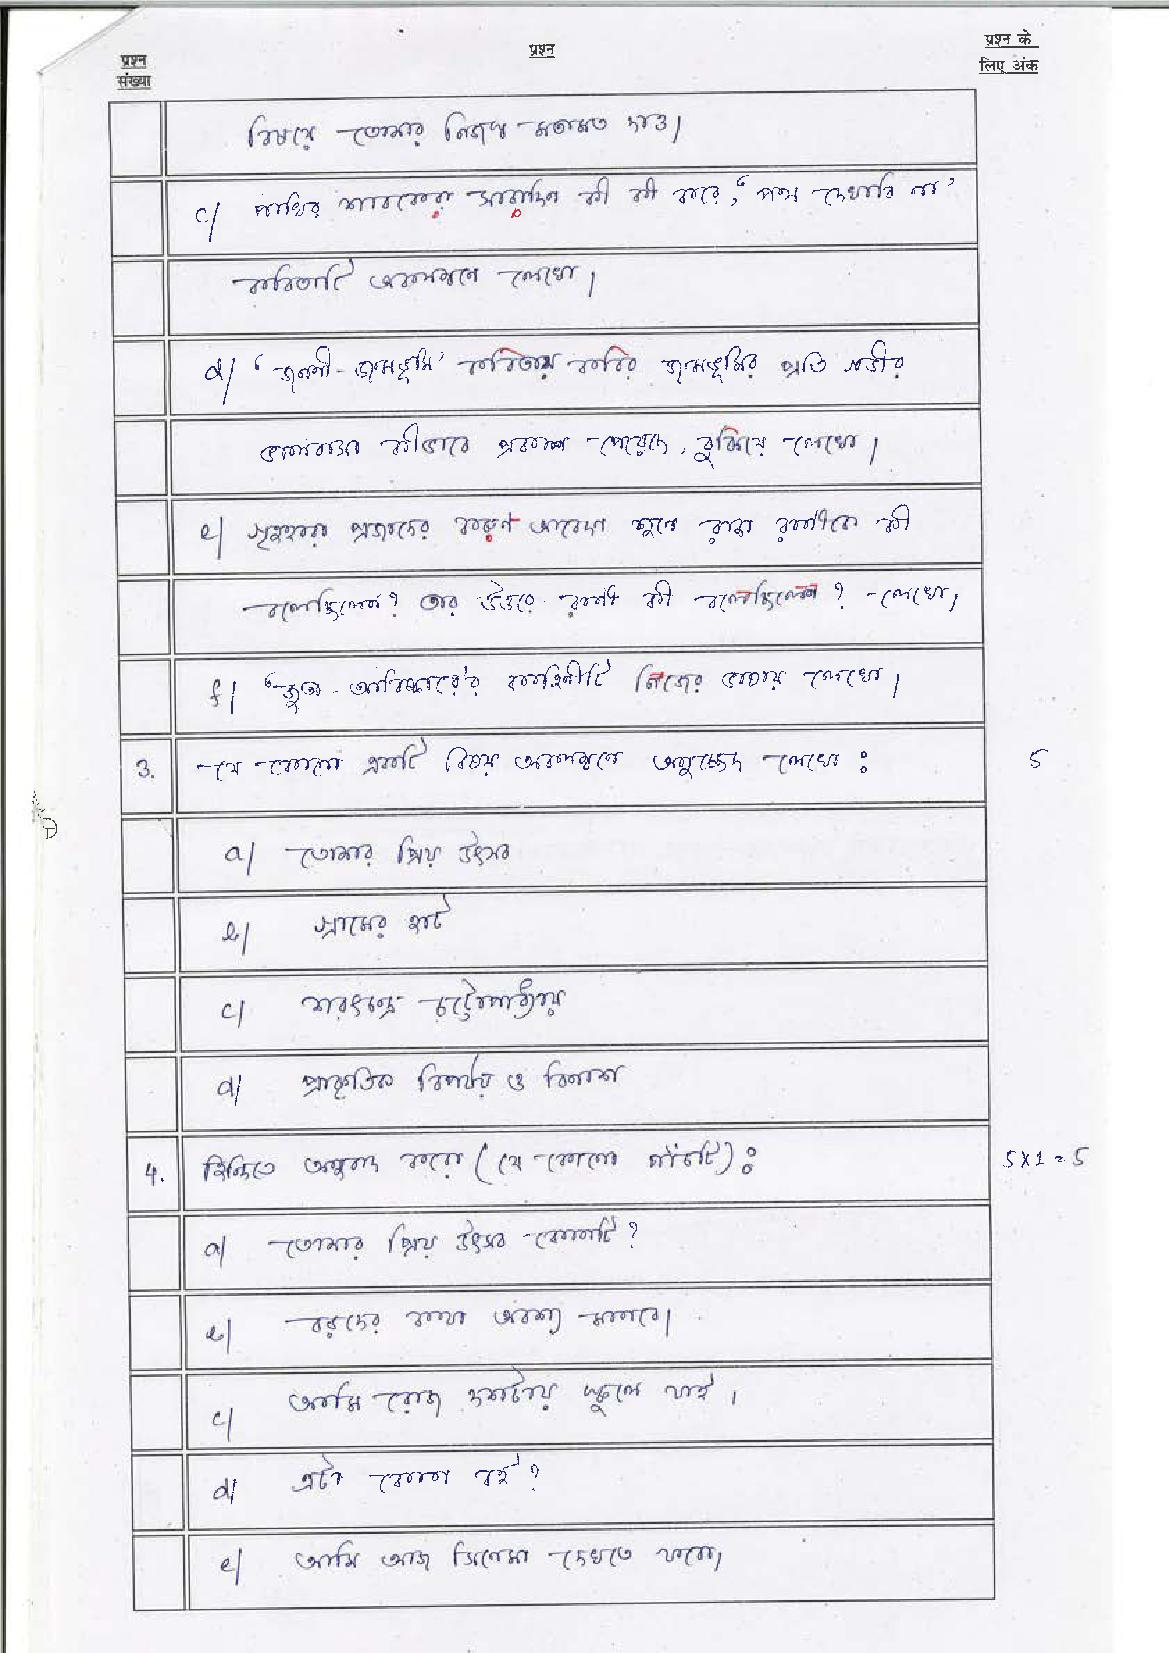 प्रश्न संख्या
प्रश्न
प्रश्न के लिए अंक
বিষয়ে তোমার নিজস্ব মতামত দাও।
c) পাখির শাবকেরা সারাদিন কী কী করে, 'পথ দেখাবি না'
কবিতাটি অবলম্বনে লেখো।
d) 'জননী-জন্মভূমি' কবিতায় কবির জন্মভূমির প্রতি গভীর
ভালোবাসা কীভাবে প্রকাশ পেয়েছে, বুঝিয়ে লেখো।
e) গৃহহারা প্রজাদের করুণ আবেদন শুনে রাজা রানীকে কী
বলেছিলেন? তার উত্তরে রানী কী বলেছিলেন? লেখো।
f) 'জুতা-আবিষ্কারে'র কাহিনীটি নিজের ভাষায় লেখো।
3. যে কোনো একটি বিষয় অবলম্বনে অনুচ্ছেদ লেখো: 5
a) তোমার প্রিয় উৎসব
b) গ্রামের হাট
c) শরৎচন্দ্র চট্টোপাধ্যায়
d) প্রাকৃতিক বিপর্যয় ও বিনাশ
4. হিন্দিতে অনুবাদ করো (যে কোনো পাঁচটি): 5X1=5
a) তোমার প্রিয় উৎসব কোনটি?
b) বড়দের কথা অবশ্য মানবে।
c) আমি রোজ দশটায় স্কুলে যাই।
d) এটা কোন বই?
e) আমি আজ সিনেমা দেখতে যাবো।